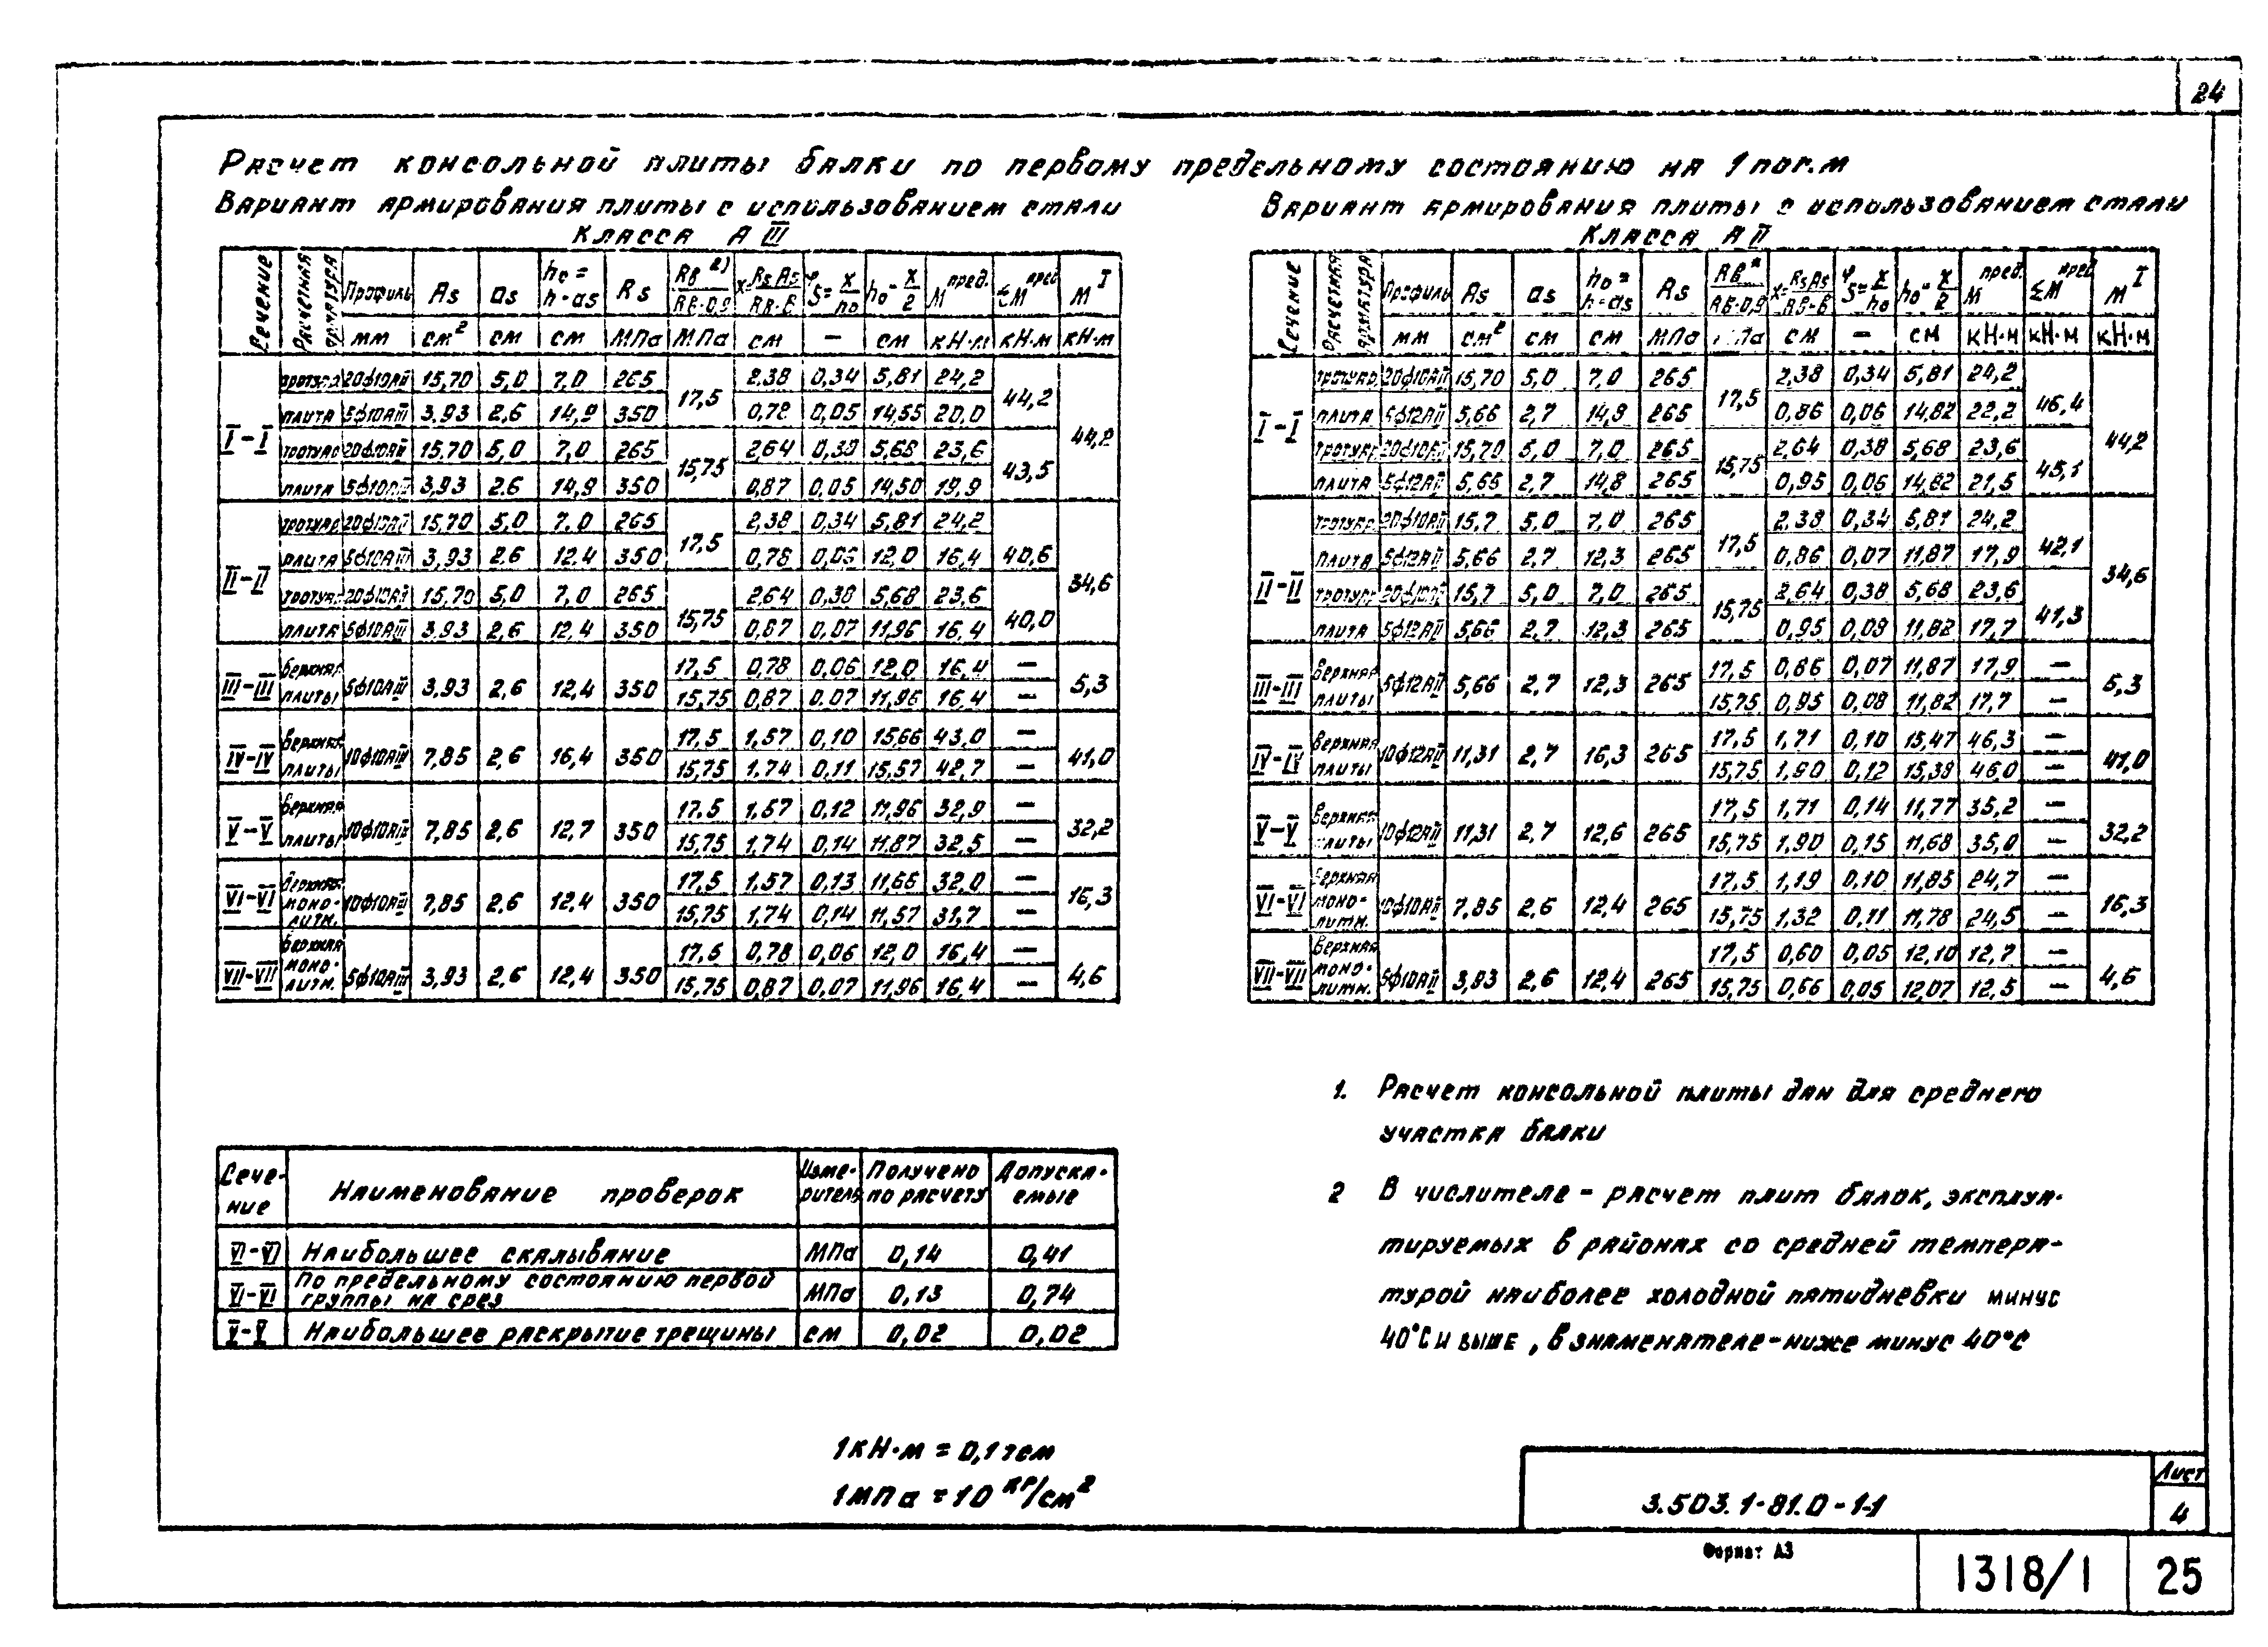 24
Расчет консольной плиты балки по первому предельному состоянию на 1 пог.м
Вариант армирования плиты с использованием стали
класса А III
Сечение Расчетная арматура Профиль As as ho = h-as Rs Rв 2) / Rв·0,9 x= Rs As / Rв·в ξ= x/ho ho- x/2 М пред. ΣМ пред М I
мм см² см см МПа МПа см — см кН·м кН·м кН·м
I-I тротуар 20ф10АII 15,70 5,0 7,0 265 17,5 2,38 0,34 5,81 24,2 44,2 44,2
плита 5ф10АIII 3,93 2,6 14,9 350 0,78 0,05 14,55 20,0
тротуар 20ф10АII 15,70 5,0 7,0 265 15,75 2,64 0,38 5,68 23,6 43,5
плита 5ф10АIII 3,93 2,6 14,9 350 0,87 0,05 14,50 19,9
II-II тротуар 20ф10АII 15,70 5,0 7,0 265 17,5 2,38 0,34 5,81 24,2 40,6 34,6
плита 5ф10АIII 3,93 2,6 12,4 350 0,78 0,06 12,0 16,4
тротуар 20ф10АII 15,70 5,0 7,0 265 15,75 2,64 0,38 5,68 23,6 40,0
плита 5ф10АIII 3,93 2,6 12,4 350 0,87 0,07 11,96 16,4
III-III Верхняя плиты 5ф10АIII 3,93 2,6 12,4 350 17,5 0,78 0,06 12,0 16,4 — 5,3
15,75 0,87 0,07 11,96 16,4 —
IV-IV Верхняя плиты 10ф10АIII 7,85 2,6 16,4 350 17,5 1,57 0,10 15,66 43,0 — 41,0
15,75 1,74 0,11 15,57 42,7 —
V-V Верхняя плиты 10ф10АIII 7,85 2,6 12,7 350 17,5 1,57 0,12 11,96 32,9 — 32,2
15,75 1,74 0,14 11,87 32,5 —
VI-VI Верхняя моно-литн. 10ф10АIII 7,85 2,6 12,4 350 17,5 1,57 0,13 11,66 32,0 — 16,3
15,75 1,74 0,14 11,57 31,7 —
VII-VII Верхняя моно-литн. 5ф10АIII 3,93 2,6 12,4 350 17,5 0,78 0,06 12,0 16,4 — 4,6
15,75 0,87 0,07 11,96 16,4 —
Вариант армирования плиты с использованием стали
класса А II
Сечение Расчетная арматура Профиль As as ho = h-as Rs Rв * / Rв·0,9 x= Rs As / Rв·в ξ= x/ho ho- x/2 М пред. ΣМ пред М I
мм см² см см МПа МПа см — см кН·м кН·м кН·м
I-I тротуар 20ф10АII 15,70 5,0 7,0 265 17,5 2,38 0,34 5,81 24,2 46,4 44,2
плита 5ф12АII 5,66 2,7 14,8 265 0,86 0,06 14,82 22,2
тротуар 20ф10АII 15,70 5,0 7,0 265 15,75 2,64 0,38 5,68 23,6 45,1
плита 5ф12АII 5,66 2,7 14,8 265 0,95 0,06 14,82 21,5
II-II тротуар 20ф10АII 15,7 5,0 7,0 265 17,5 2,38 0,34 5,81 24,2 42,1 34,6
плита 5ф12АII 5,66 2,7 12,3 265 0,86 0,07 11,87 17,9
тротуар 20ф10АII 15,7 5,0 7,0 265 15,75 2,64 0,38 5,68 23,6 41,3
плита 5ф12АII 5,66 2,7 12,3 265 0,95 0,08 11,82 17,7
III-III Верхняя плиты 5ф12АII 5,66 2,7 12,3 265 17,5 0,86 0,07 11,87 17,9 — 5,3
15,75 0,95 0,08 11,82 17,7 —
IV-IV Верхняя плиты 10ф12АII 11,31 2,7 16,3 265 17,5 1,71 0,10 15,47 46,3 — 41,0
15,75 1,90 0,12 15,38 46,0 —
V-V Верхняя плиты 10ф12АII 11,31 2,7 12,6 265 17,5 1,71 0,14 11,77 35,2 — 32,2
15,75 1,90 0,15 11,68 35,0 —
VI-VI Верхняя моно-литн. 10ф10АII 7,85 2,6 12,4 265 17,5 1,19 0,10 11,85 24,7 — 16,3
15,75 1,32 0,11 11,78 24,5 —
VII-VII Верхняя моно-литн. 5ф10АII 3,93 2,6 12,4 265 17,5 0,60 0,05 12,10 12,7 — 4,6
15,75 0,66 0,05 12,07 12,5 —
1. Расчет консольной плиты дан для среднего
участка балки
2 В числителе - расчет плит балок, эксплуа-
тируемых в районах со средней темпера-
турой наиболее холодной пятидневки минус
40°С и выше, в знаменателе - ниже минус 40°С
Сече-ние Наименование проверок Изме-ритель Получено по расчету Допуска-емые
VI-VI Наибольшее скалывание МПа 0,14 0,41
VI-VI По предельному состоянию первой группы на срез МПа 0,13 0,74
V-V Наибольшее раскрытие трещины см 0,02 0,02
1кН·м = 0,1тсм
1МПа = 10 кг/см²
3.503.1-81.0-1-1
Лист
4
Формат А3
1318/1
25